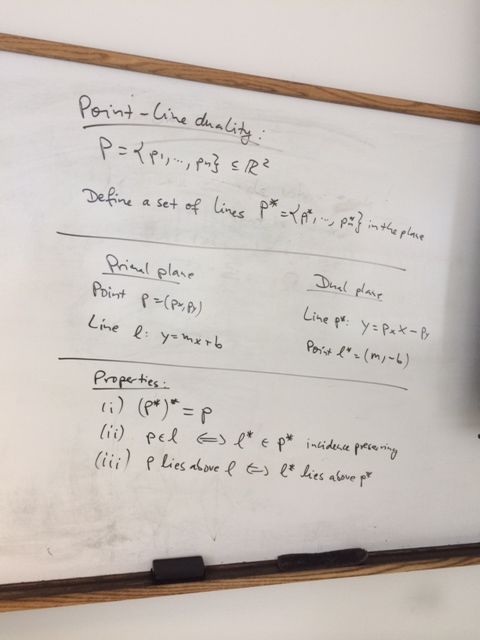 Point-line duality:
P = {p1, ..., pn} ⊆ ℝ²
Define a set of lines P* = {p1*, ..., pn*} in the plane
Primal plane
Point p = (px, py)
Line l: y = mx + b
Dual plane
Line p*: y = px x - py
Point l* = (m, -b)
Properties:
(i) (p*)* = p
(ii) p ∈ l ⟺ l* ∈ p* incidence preserving
(iii) p lies above l ⟺ l* lies above p*